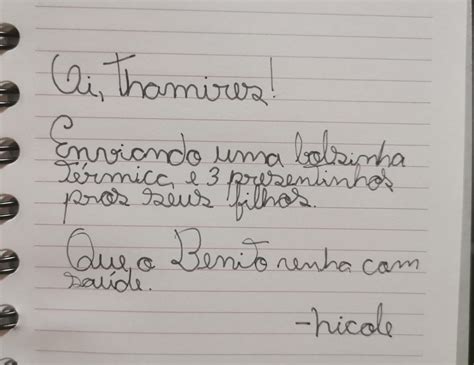 Oi, Thamires!
Enviando uma bolsinha
térmica e 3 presentinhos
pros seus filhos.
Que o Benito venha com
saúde.
-nicole